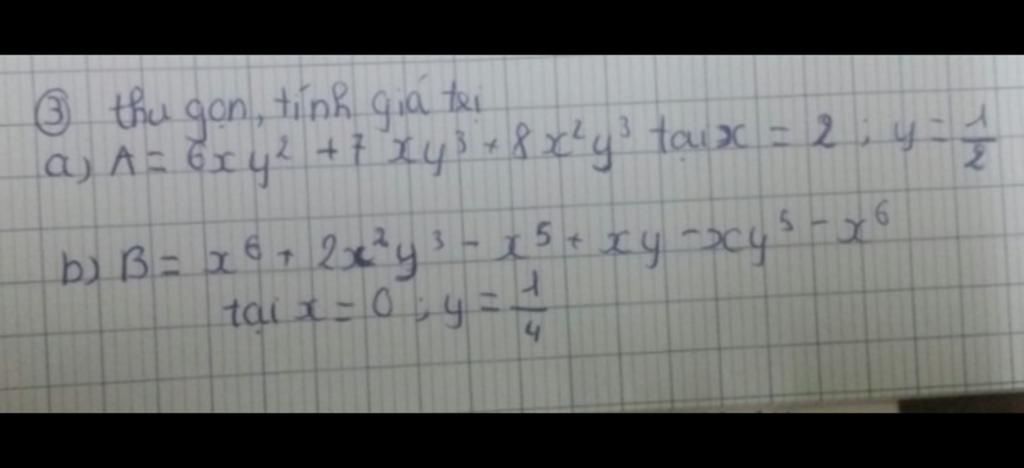 ③ thu gọn, tính giá tại
a) A = 6xy² + 7xy³ + 8x²y³ tại x = 2 ; y = 1/2
b) B = x⁶ + 2x²y³ - x⁵ + xy - xy⁵ - x⁶
tại x = 0 ; y = 1/4